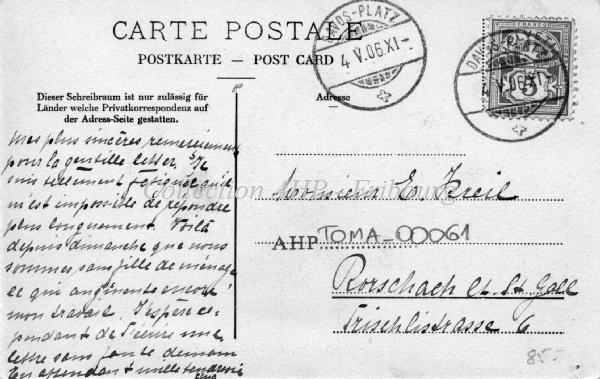 CARTE POSTALE
POSTKARTE — POST CARD
Dieser Schreibraum ist nur zulässig für
Länder welche Privatkorrespondenz auf
der Adress-Seite gestatten.
Adresse
DAVOS-PLATZ
4.V.06.XI-
DAVOS-PLATZ
4.V.06.XI-
FRANCO
5
Mes plus sincères remerciements
pour la gentille letter, Je
suis tellement fatiguée
m'est impossible de répondre
plus longuement. Voilà
depuis dimanche que nous
sommes sans fille de ménage
ce qui augmente encore
mon travail. J'espère ce-
pendant de t'écrire une
lettre sans faute demain
En attendant mille tendresses
Collection AHP - Fribourg
Monsieur E. Kreil
AHP TOMA-00061
Rorschach Ct. St Gall
Trischlistrasse 6
85.-